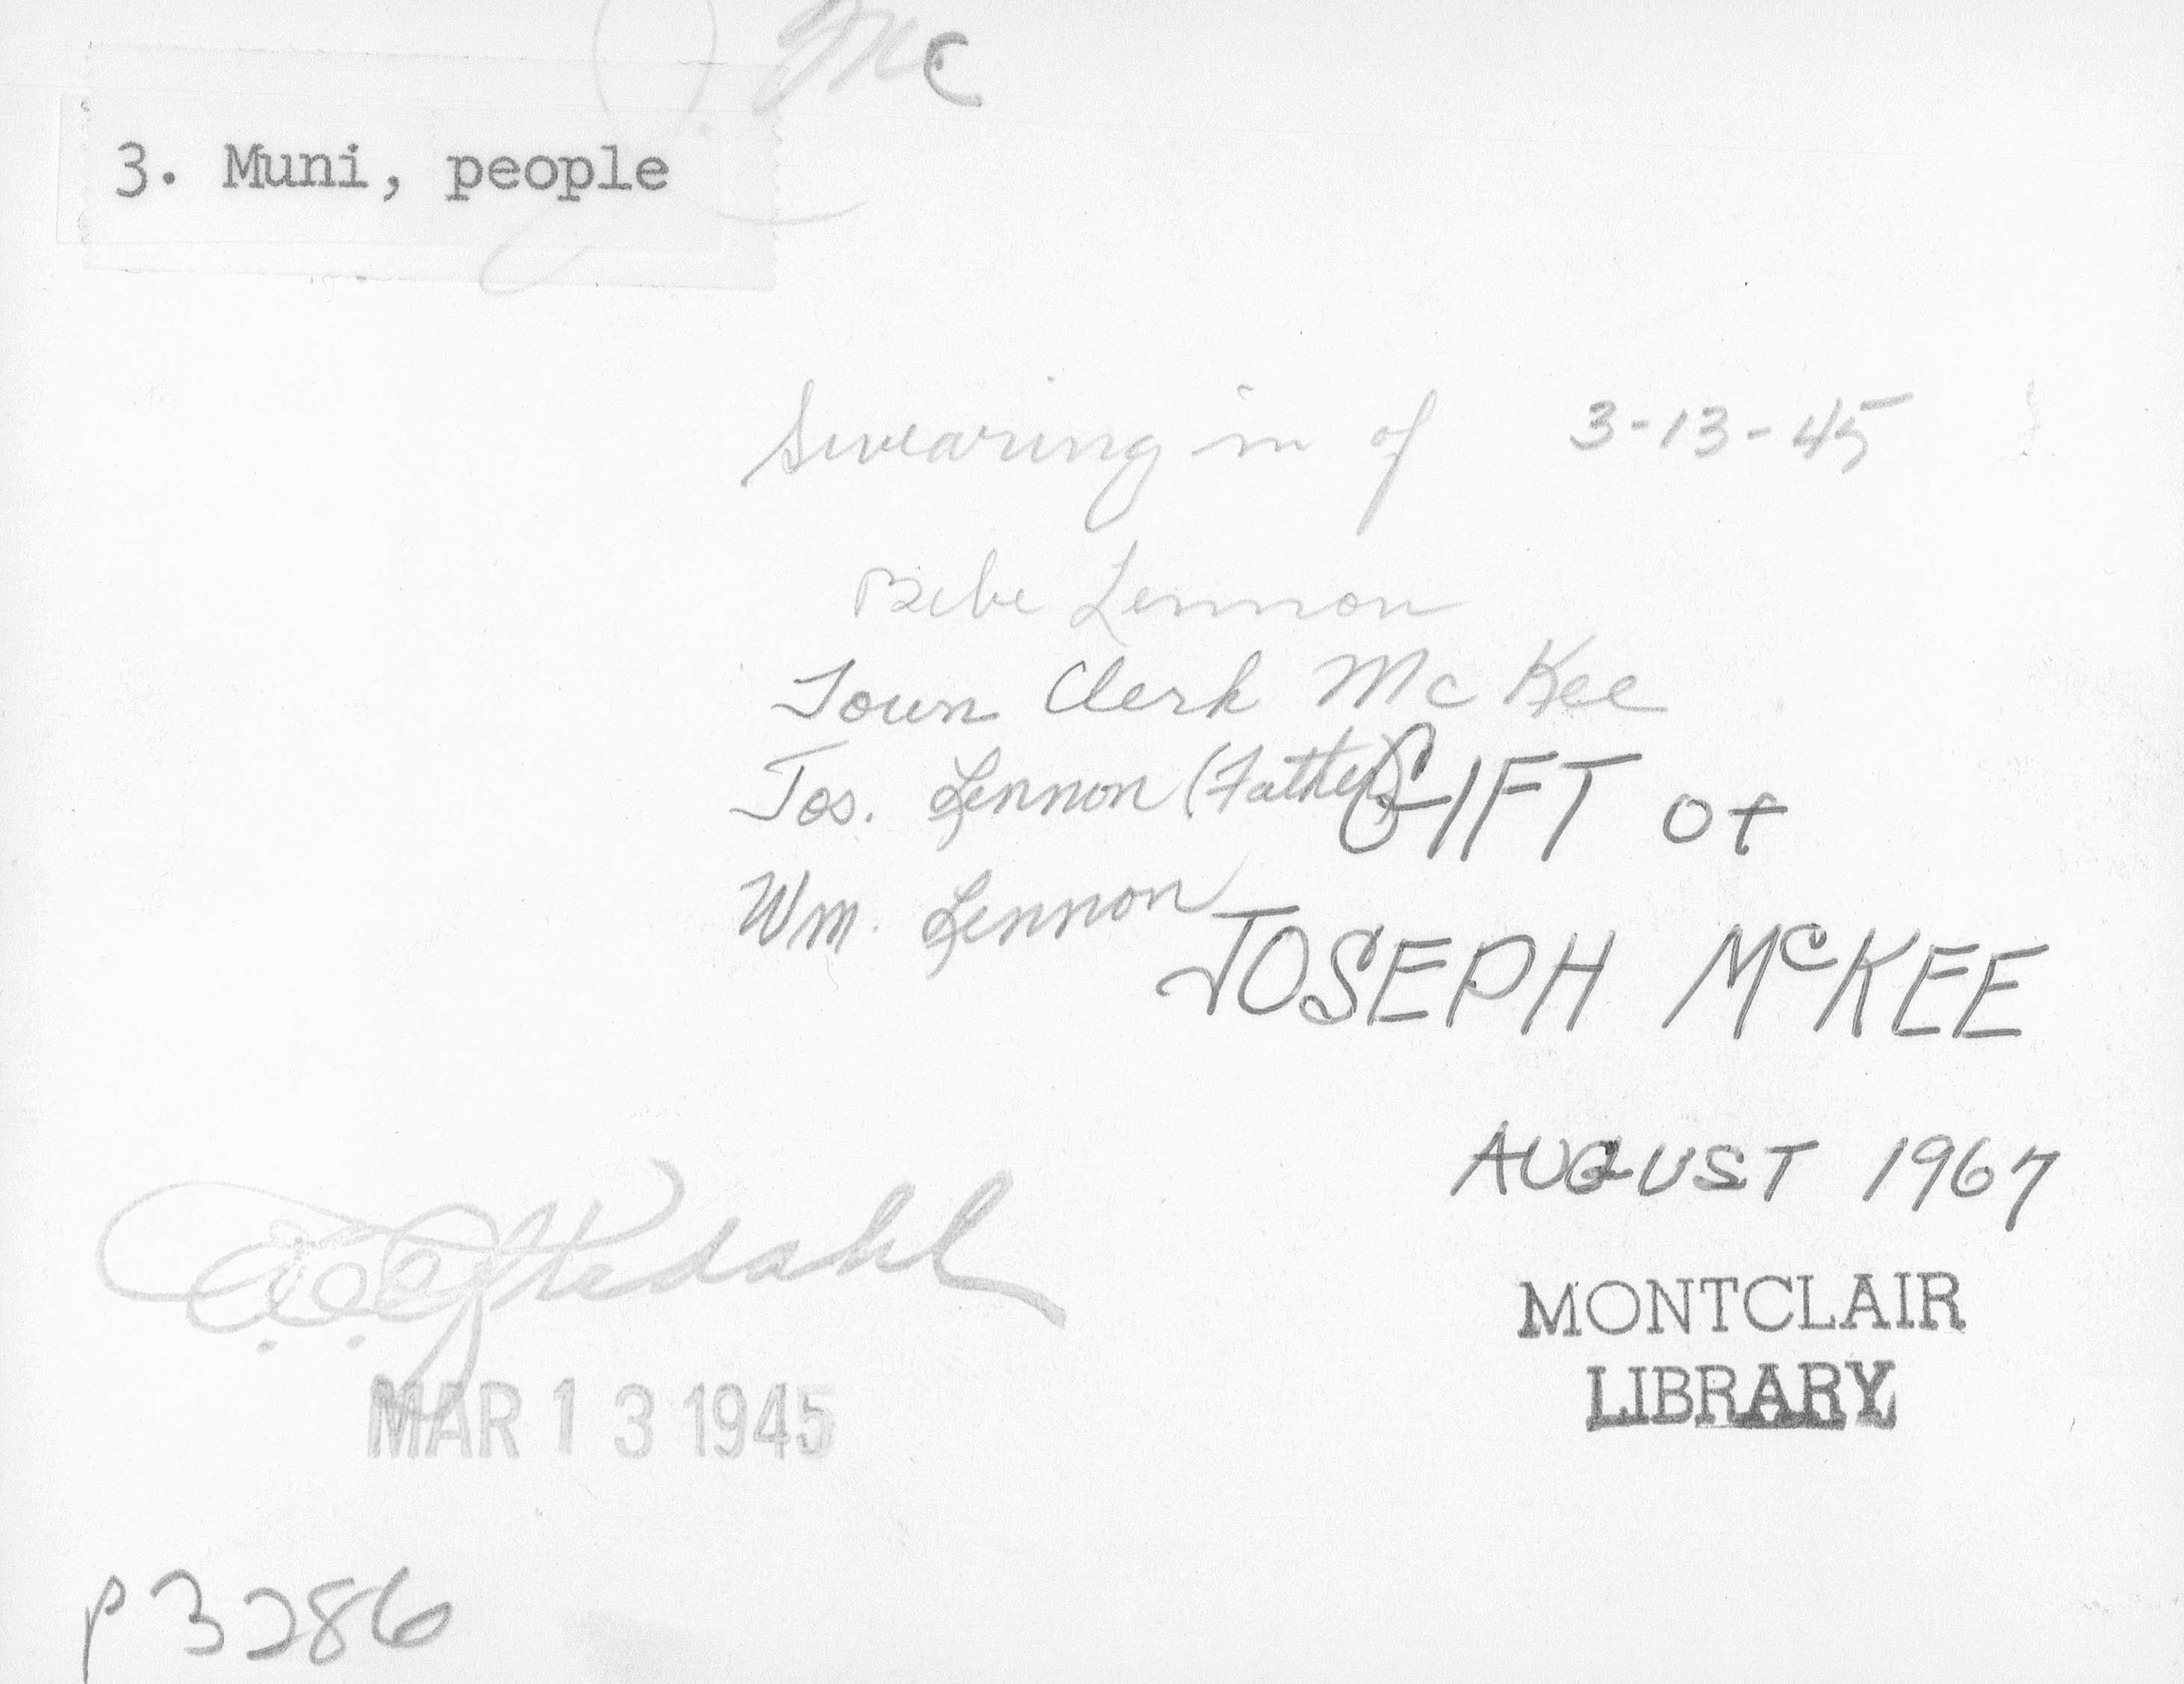 Mc
3. Muni, people
Swearing in of 3-13-45
Bebe Lennon
Town Clerk McKee
Jos. Lennon (Father)
GIFT of
Wm. Lennon
JOSEPH McKEE
AUGUST 1967
MAR 13 1945
MONTCLAIR
LIBRARY
P3286